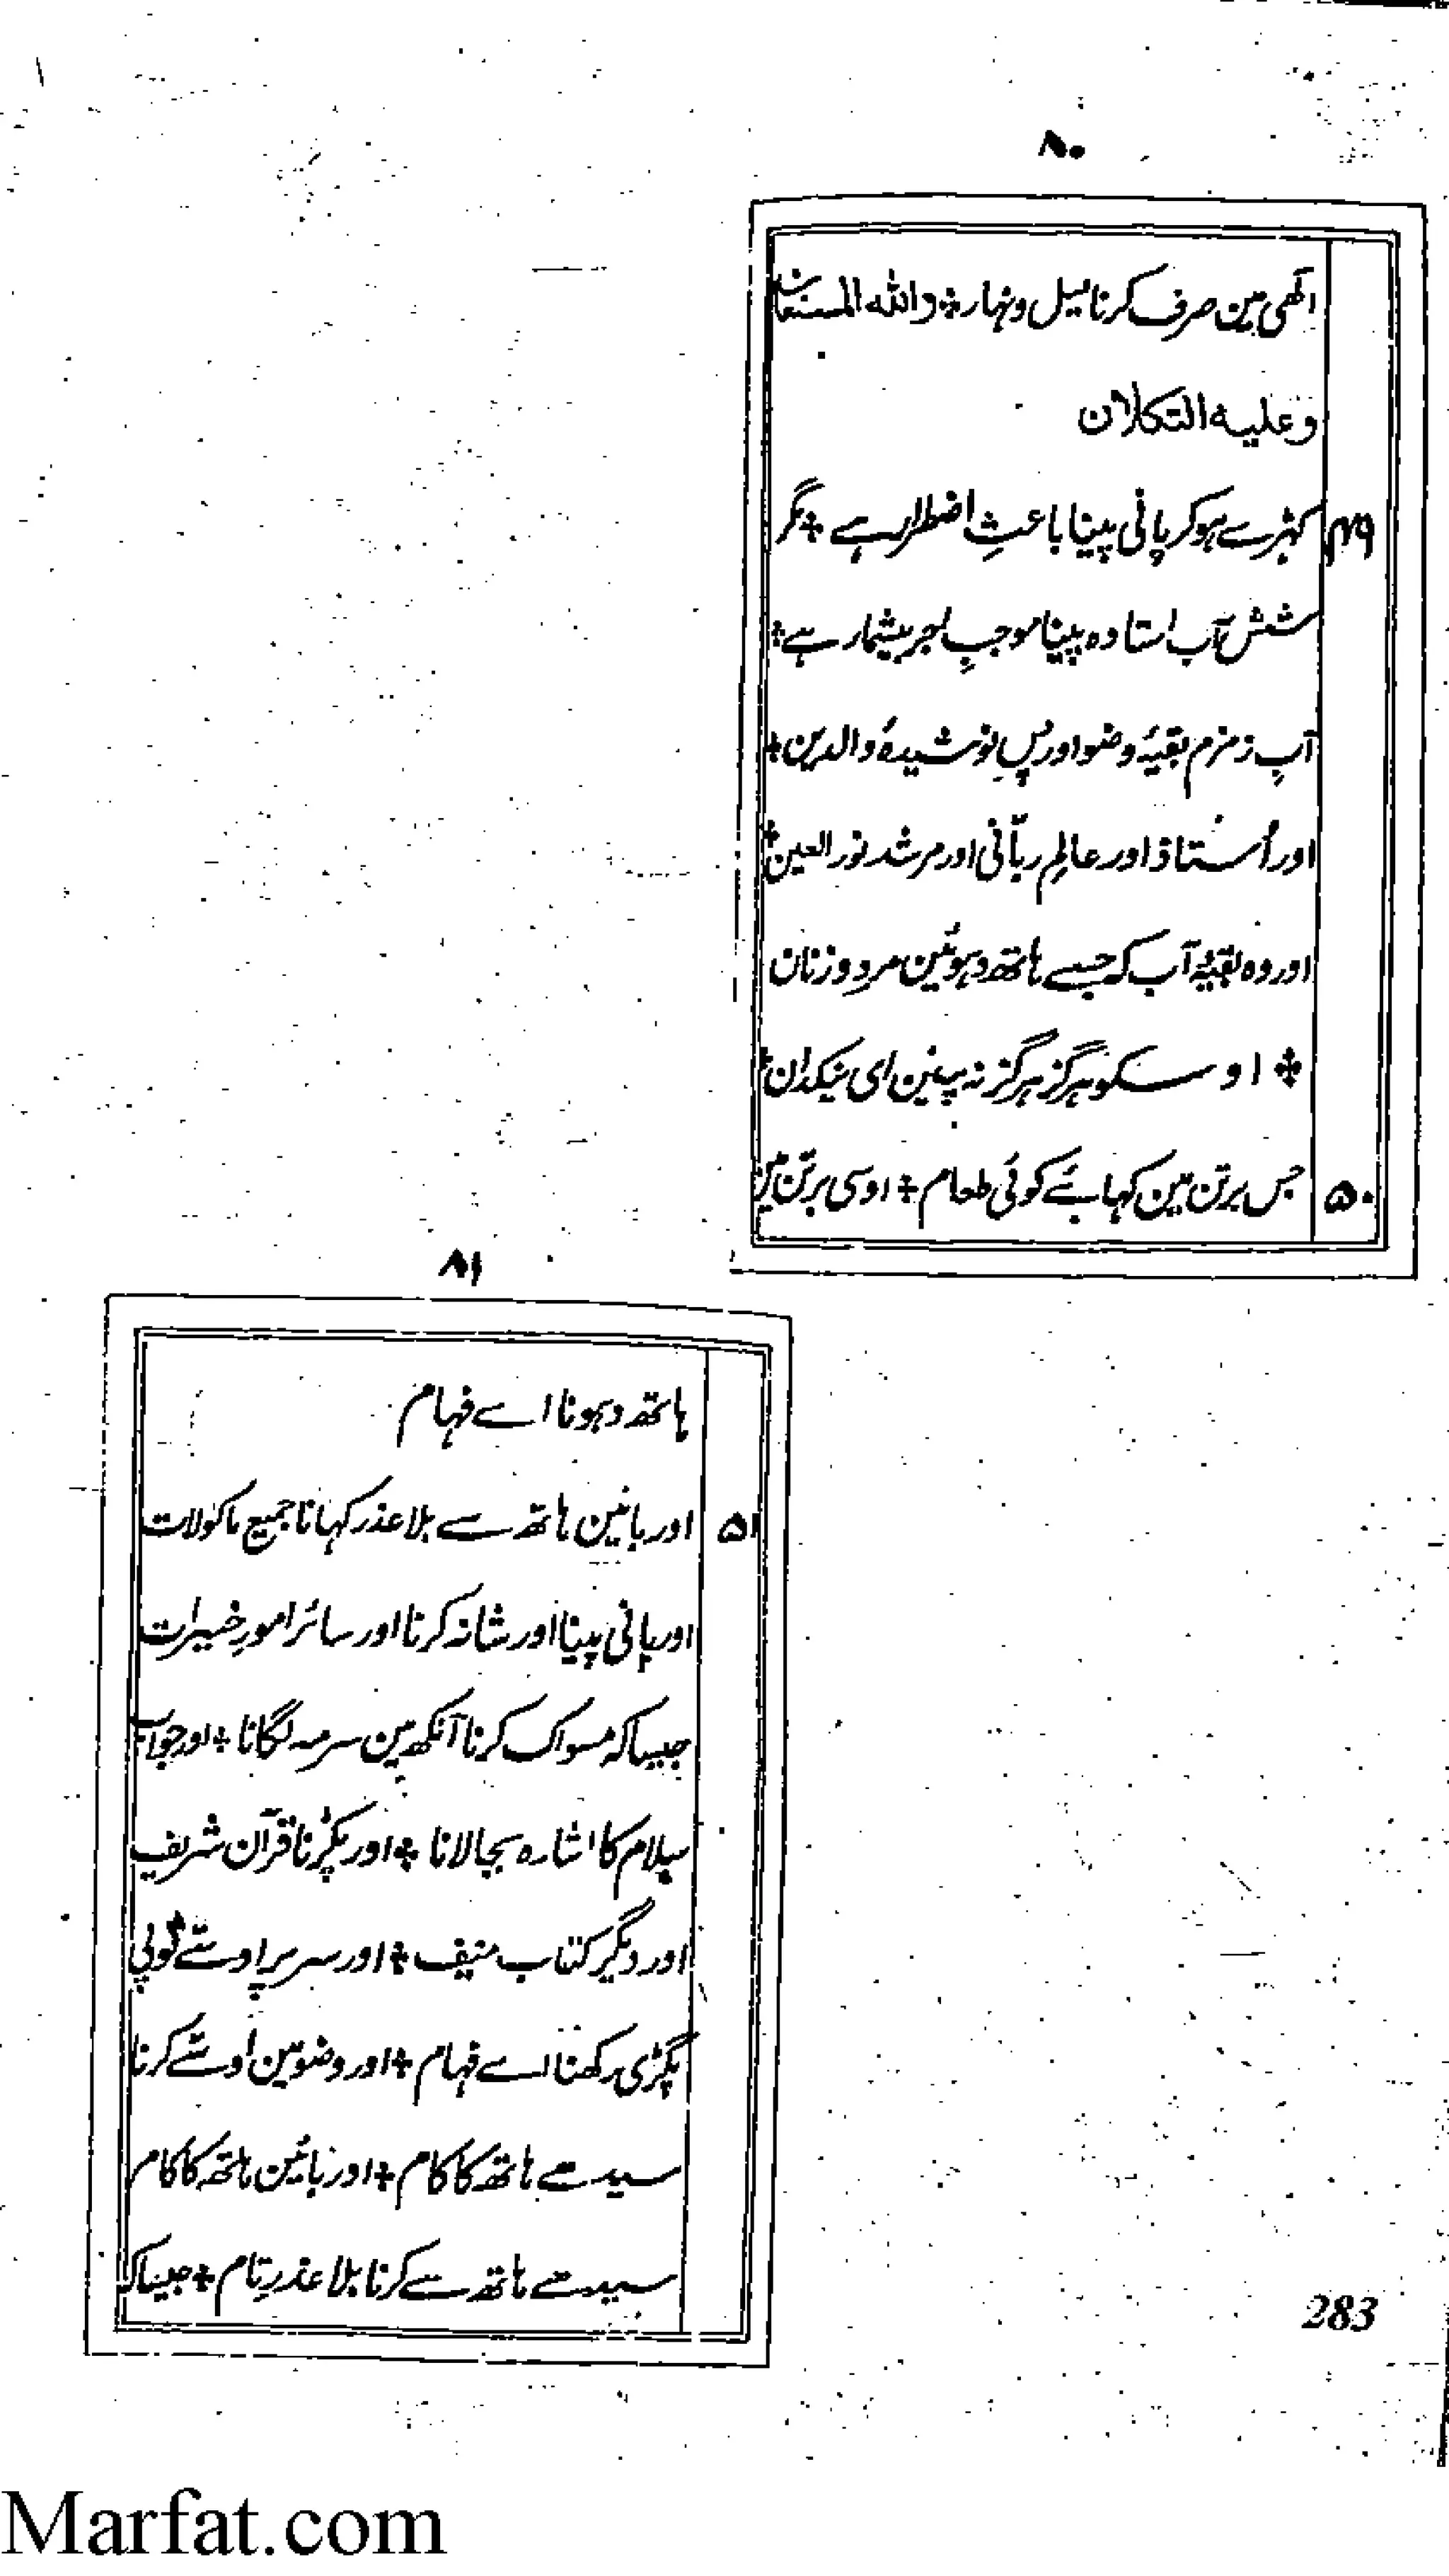 ۸۰
الٰھی مین صرف کرنا لیل و نہار ÷ واللہ المستعان
وعلیہ التکلان
۴۹ کہڑے ہوکر پانی پینا باعثِ اضطرار ہے ÷ مگر
شش آب استادہ پینا موجبِ اجر بیشمار ہے ÷
آبِ زمزم بقیۂ وضو اور پس نوشیدۂ والدین ÷
اور اُستاذ اور عالمِ ربّانی اور مرشد نور العین ÷
اور وہ بقیۂ آب کہ جسے ہاتھ دہوئین مرد و زنان
÷ اوسکو ہرگز ہرگز نہ پیئین ای نیکدان ÷
۵۰ جس برتن مین کہائے کوئی طعام ÷ اوسی برتن مین
۸۱
ہاتھ دہونا اے فہام
۵۱ اور بائین ہاتھ سے بلا عذر کہانا جمیع ماکولات
اور پانی پینا اور شانہ کرنا اور سائر امورِ خیرات
جیسا کہ مسواک کرنا آنکھ مین سرمہ لگانا ÷ اور جواب
سلام کا اشارہ بجا لانا ÷ اور پکڑنا قرآن شریف
اور دیگر کتاب منیف ÷ اور سر پر اوسے ٹوپی
پگڑی رکھنا اے فہام ÷ اور وضو مین اوسے کرنا
سیدھے ہاتھ کا کام ÷ اور بائین ہاتھ کا کام
سیدھے ہاتھ سے کرنا بلا عذرِ تام ÷ جیسا کہ
283
Marfat.com